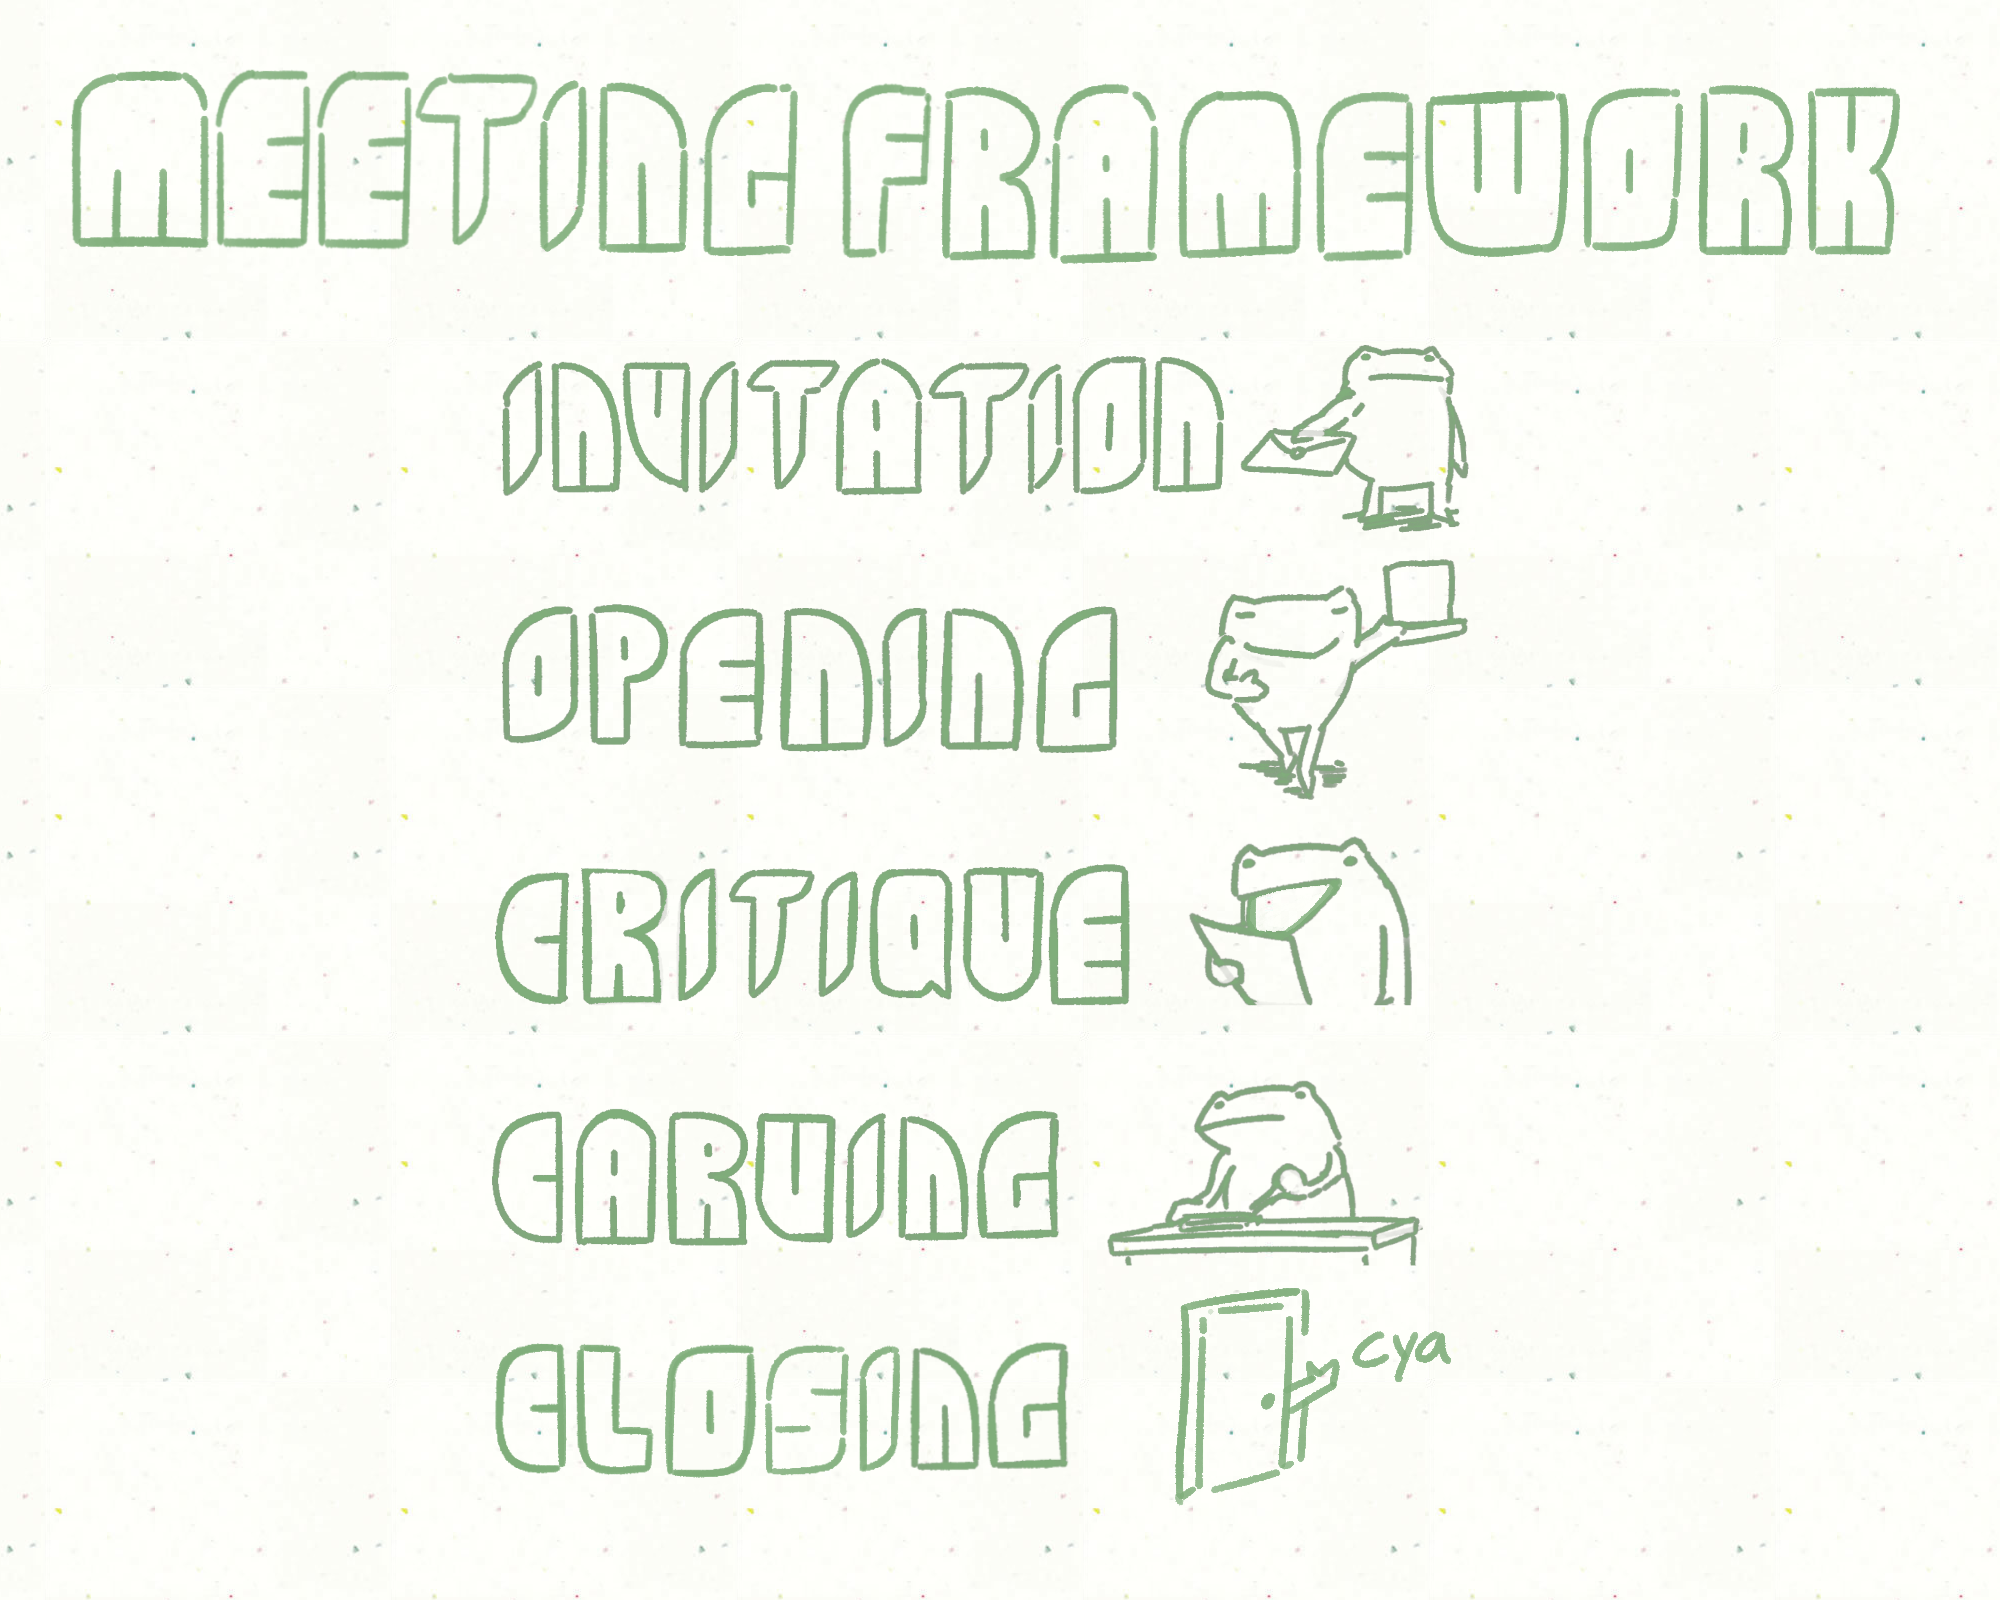 MEETING FRAMEWORK
INVITATION
OPENING
CRITIQUE
CARVING
CLOSING
cya